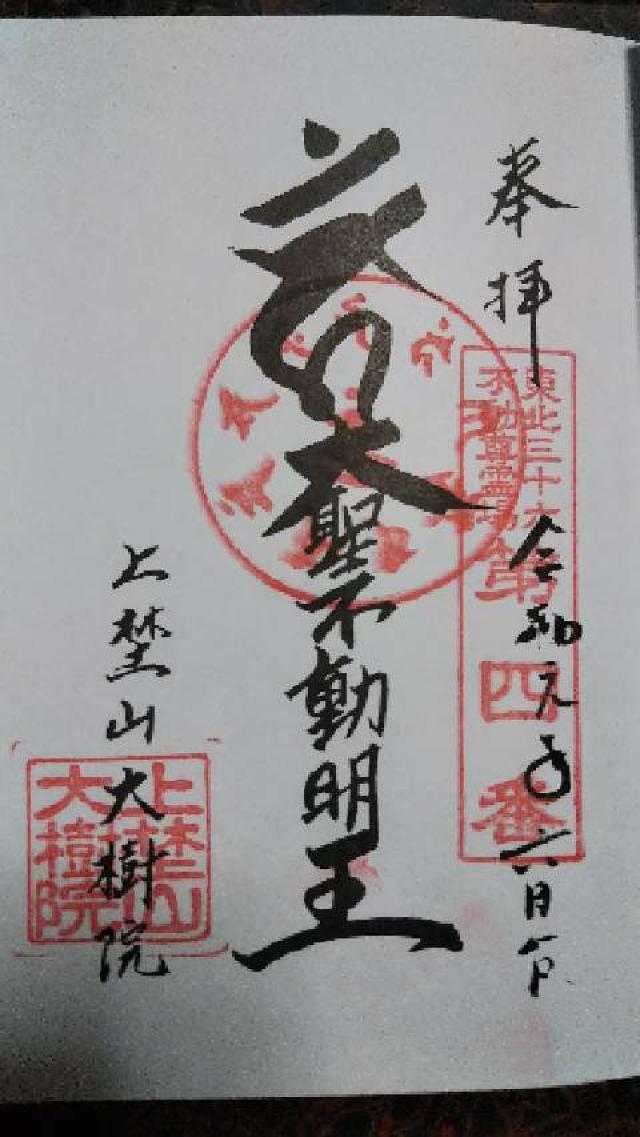 奉拝
東北三十六
不動尊霊場
第四番
令和元年六月
大聖不動明王
上埜山大樹院
上埜山
大樹院